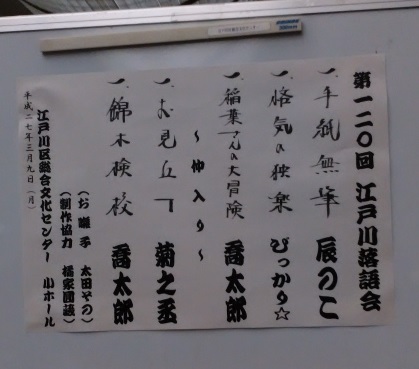 第一二〇回 江戸川落語会
一、手紙無筆 辰のこ
一、悋気の独楽 ぴっかり☆
一、稲葉さんの大冒険 喬太郎
〜仲入り〜
一、お見立て 菊之丞
一、錦木検校 喬太郎
(お囃子 太田その)
(制作協力 橘家圓藏)
江戸川区総合文化センター 小ホール
平成二七年三月九日(月)